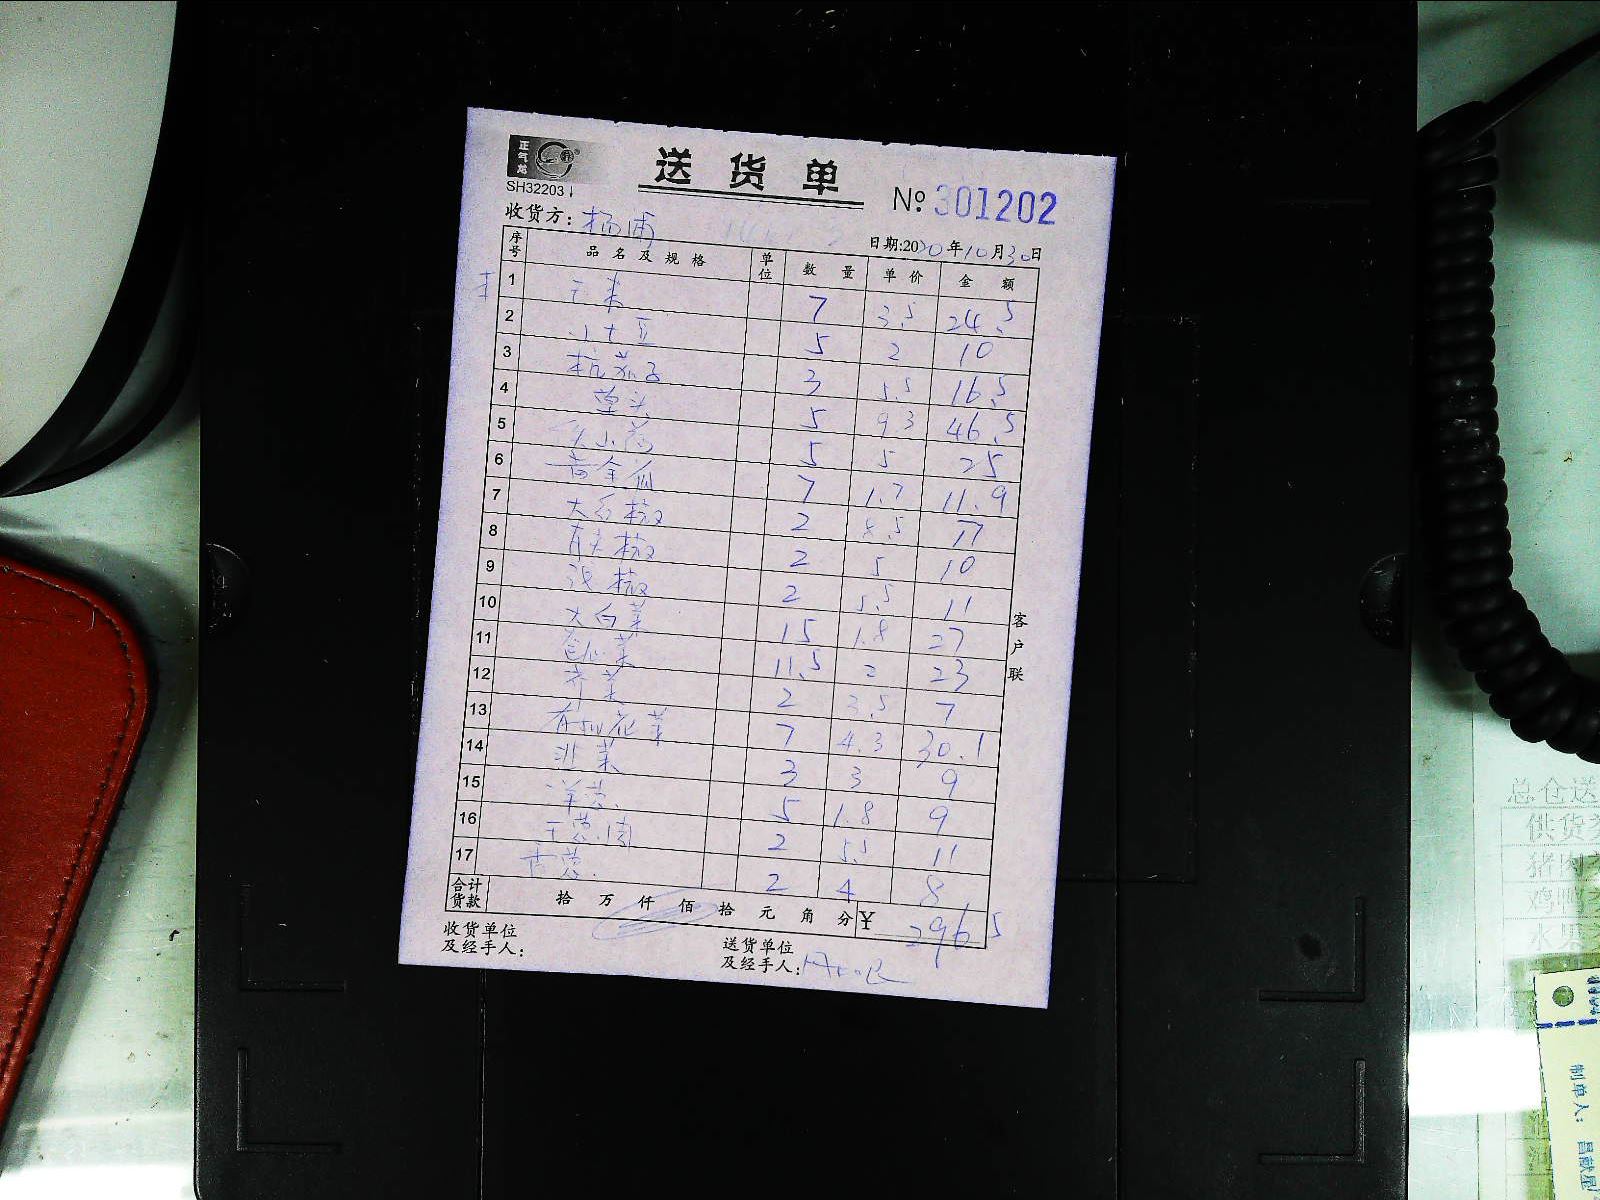 正气龙
送货单
SH32203
№ 301202
收货方: 杨浦
日期:2020年10月30日
序号 品名及规格 单位 数量 单价 金额
1 玉米 7 3.5 24.5
2 小土豆 5 2 10
3 杭茄子 3 5.5 16.5
4 草头 5 9.3 46.5
5 5 5 25
6 黄金瓜 7 1.7 11.9
7 大红椒 2 8.5 17
8 青尖椒 2 5 10
9 椒 2 5.5 11
10 大白菜 15 1.8 27
11 卷心菜 11.5 2 23
12 芹菜 2 3.5 7
13 有机花菜 7 4.3 30.1
14 韭菜 3 3 9
15 洋葱 5 1.8 9
16 2 5.5 11
17 香葱 2 4 8
合计货款 拾 万 仟 佰 拾 元 角 分 ¥ 296.5
客户联
收货单位
及经手人:
送货单位
及经手人:
总仓送
供货
猪肉
鸡鸭
水果
制单人: 昌献星